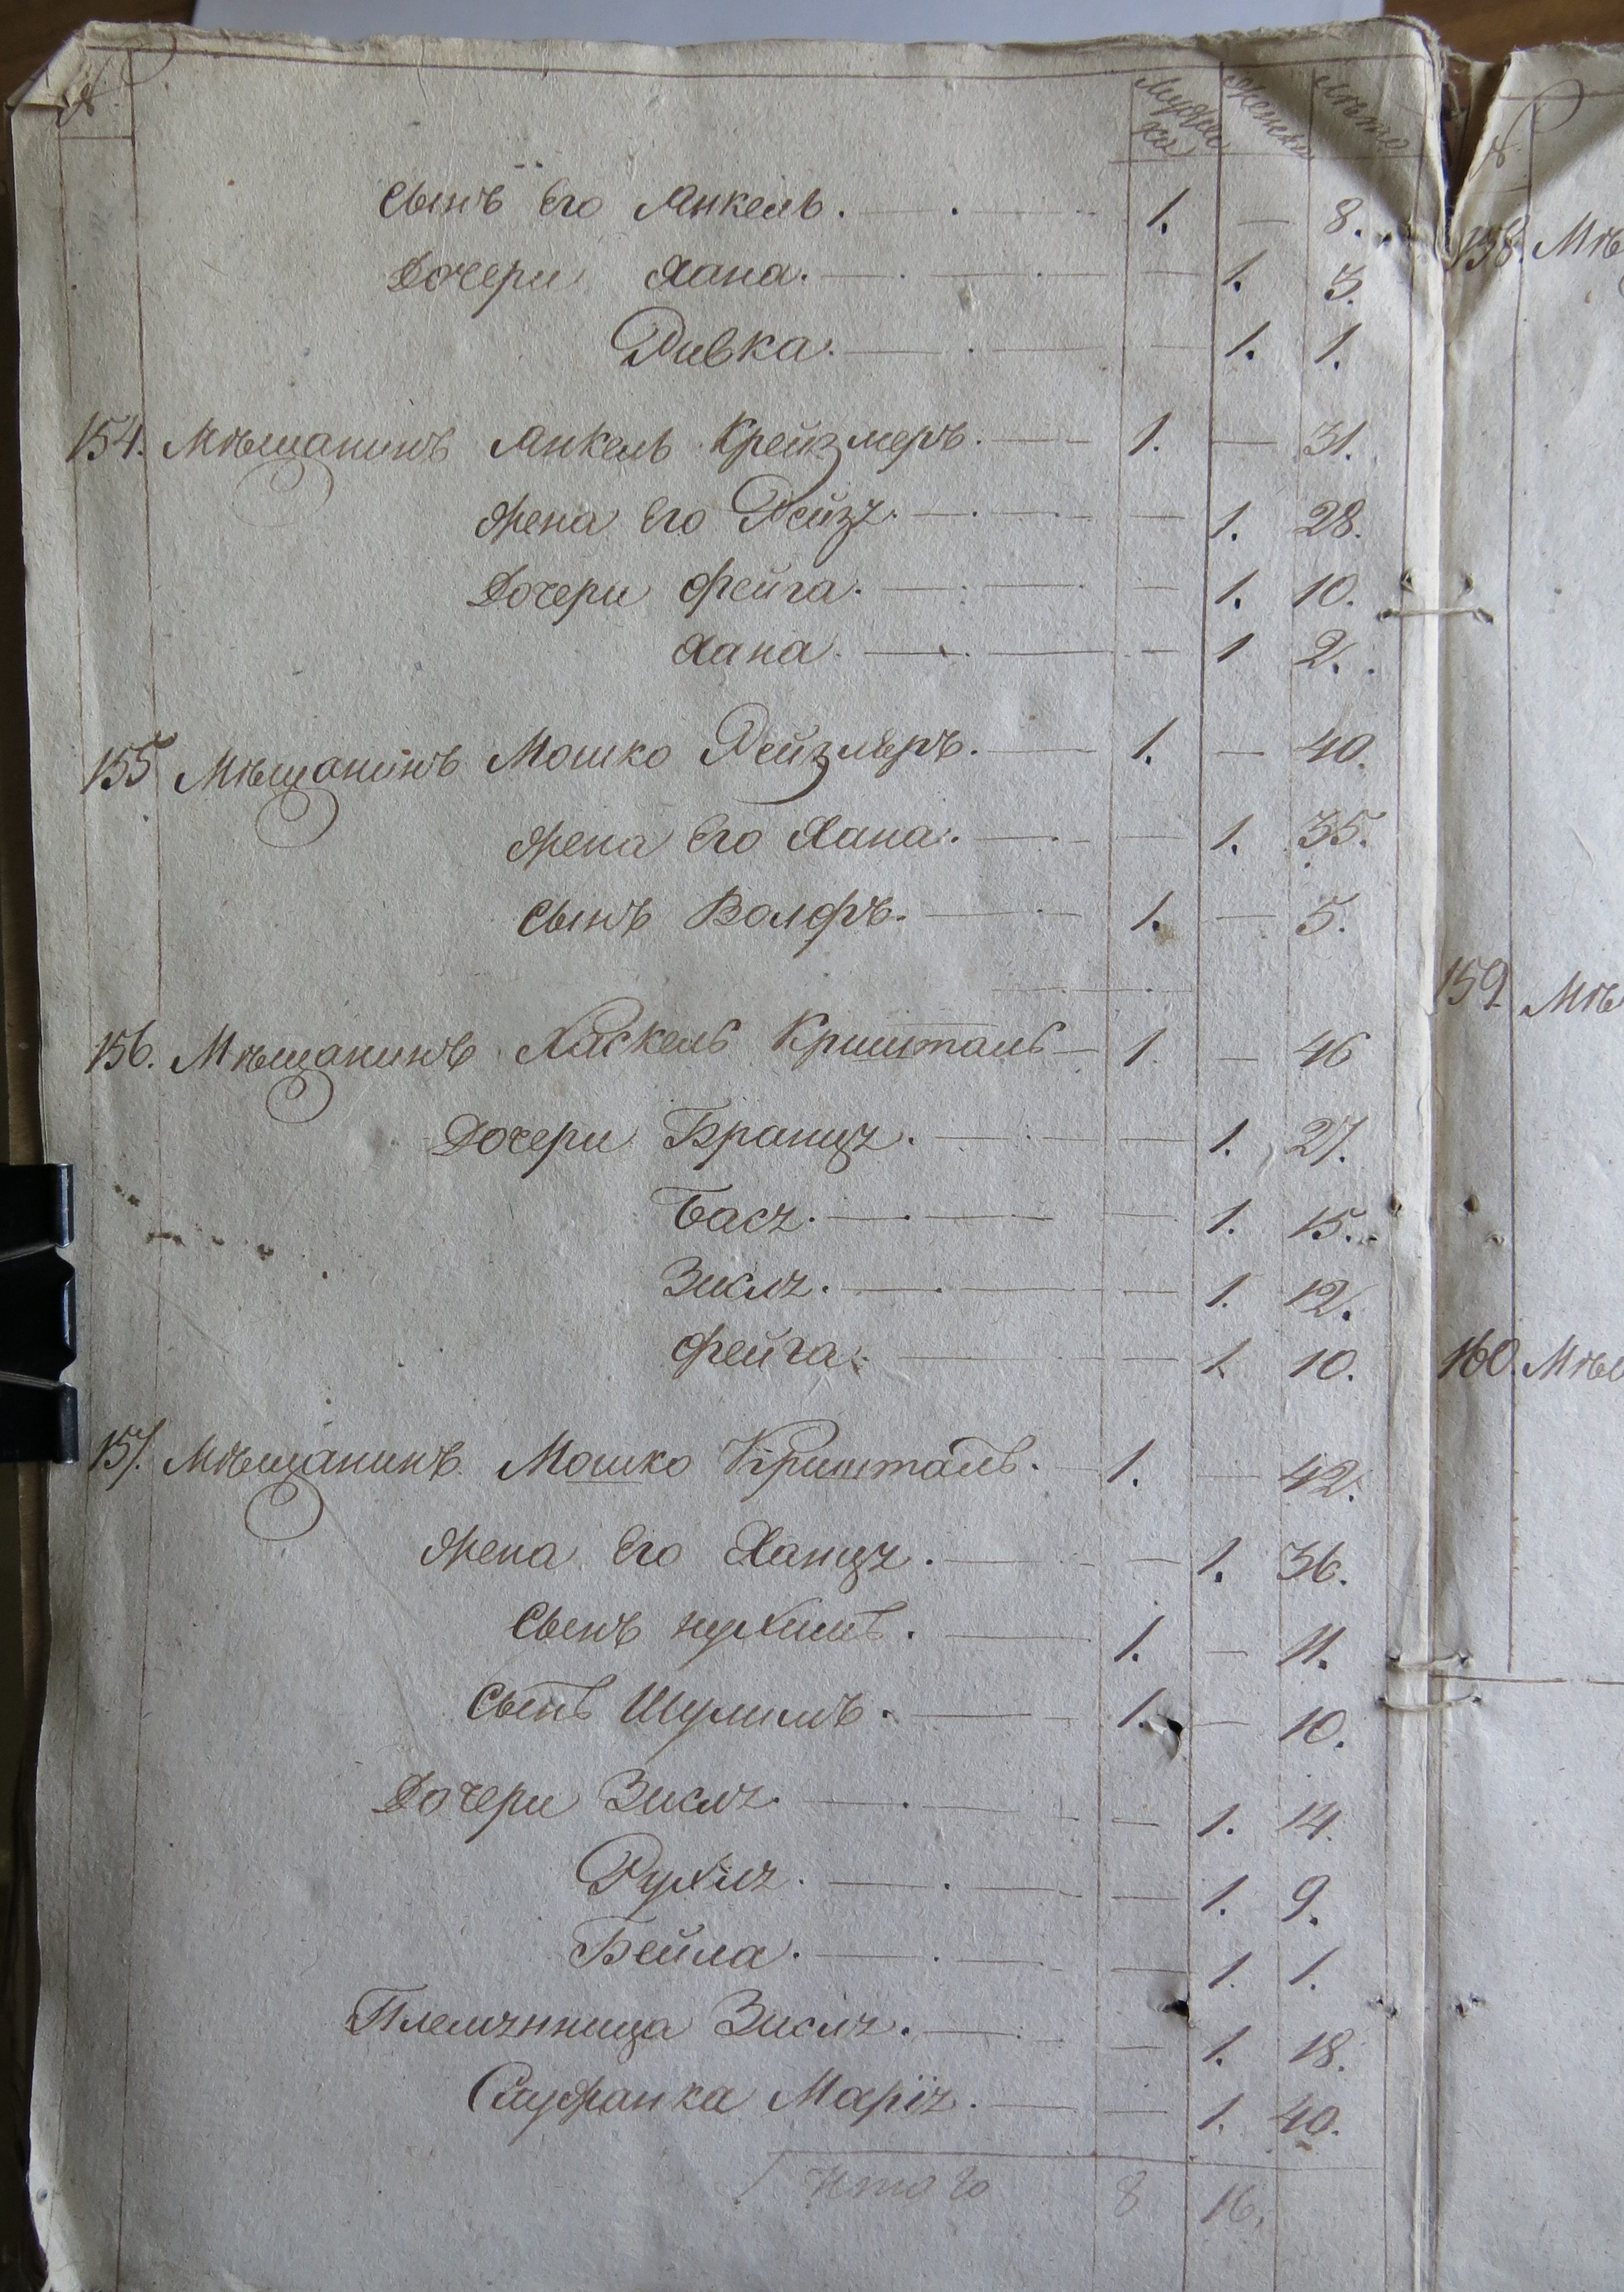 № Мужеска Женска Лѣта
Сынъ Его Янкель. 1. — 8.
Дочери Хана. — 1. 3.
Ривка. — 1. 1.
154. Мѣщанинъ Янкель Крейзмеръ. 1. — 31.
Жена Его Рейзя. — 1. 28.
Дочери Фейга. — 1. 10.
Хана. — 1 2.
155 Мѣщанинъ Мошко Рейзмеръ. 1. — 40.
Жена Его Хана. — 1. 35.
Сынъ Волфъ. 1. — 5.
156. Мѣщанинъ Хаскель Кришталь 1. — 46
Дочери Бранця. — 1. 27.
Бася. — 1. 15.
Зисля. — 1. 12.
Фейга. — 1. 10.
157. Мѣщанинъ Мошко Кришталь. 1. — 42.
Жена Его Ханця. — 1. 36.
Сынъ Нухимъ. 1. — 11.
Сынъ Шулимъ. 1. — 10.
Дочери Зисля. — 1. 14.
Рухля. — 1. 9.
Бейла. — 1. 1.
Племянница Зисля. — 1. 18.
Служанка Марія. — 1. 40.
Итого 8 16.
158. Мѣ
159 Мѣ
160. Мѣщ